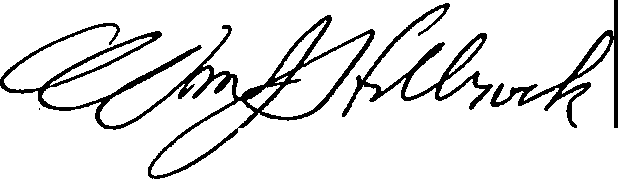 Wm J Holbrock